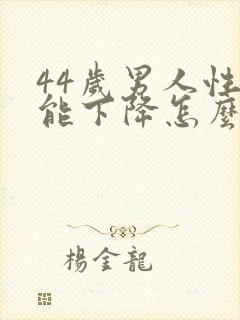 44歲男人性
能下降怎麼
楊金龍